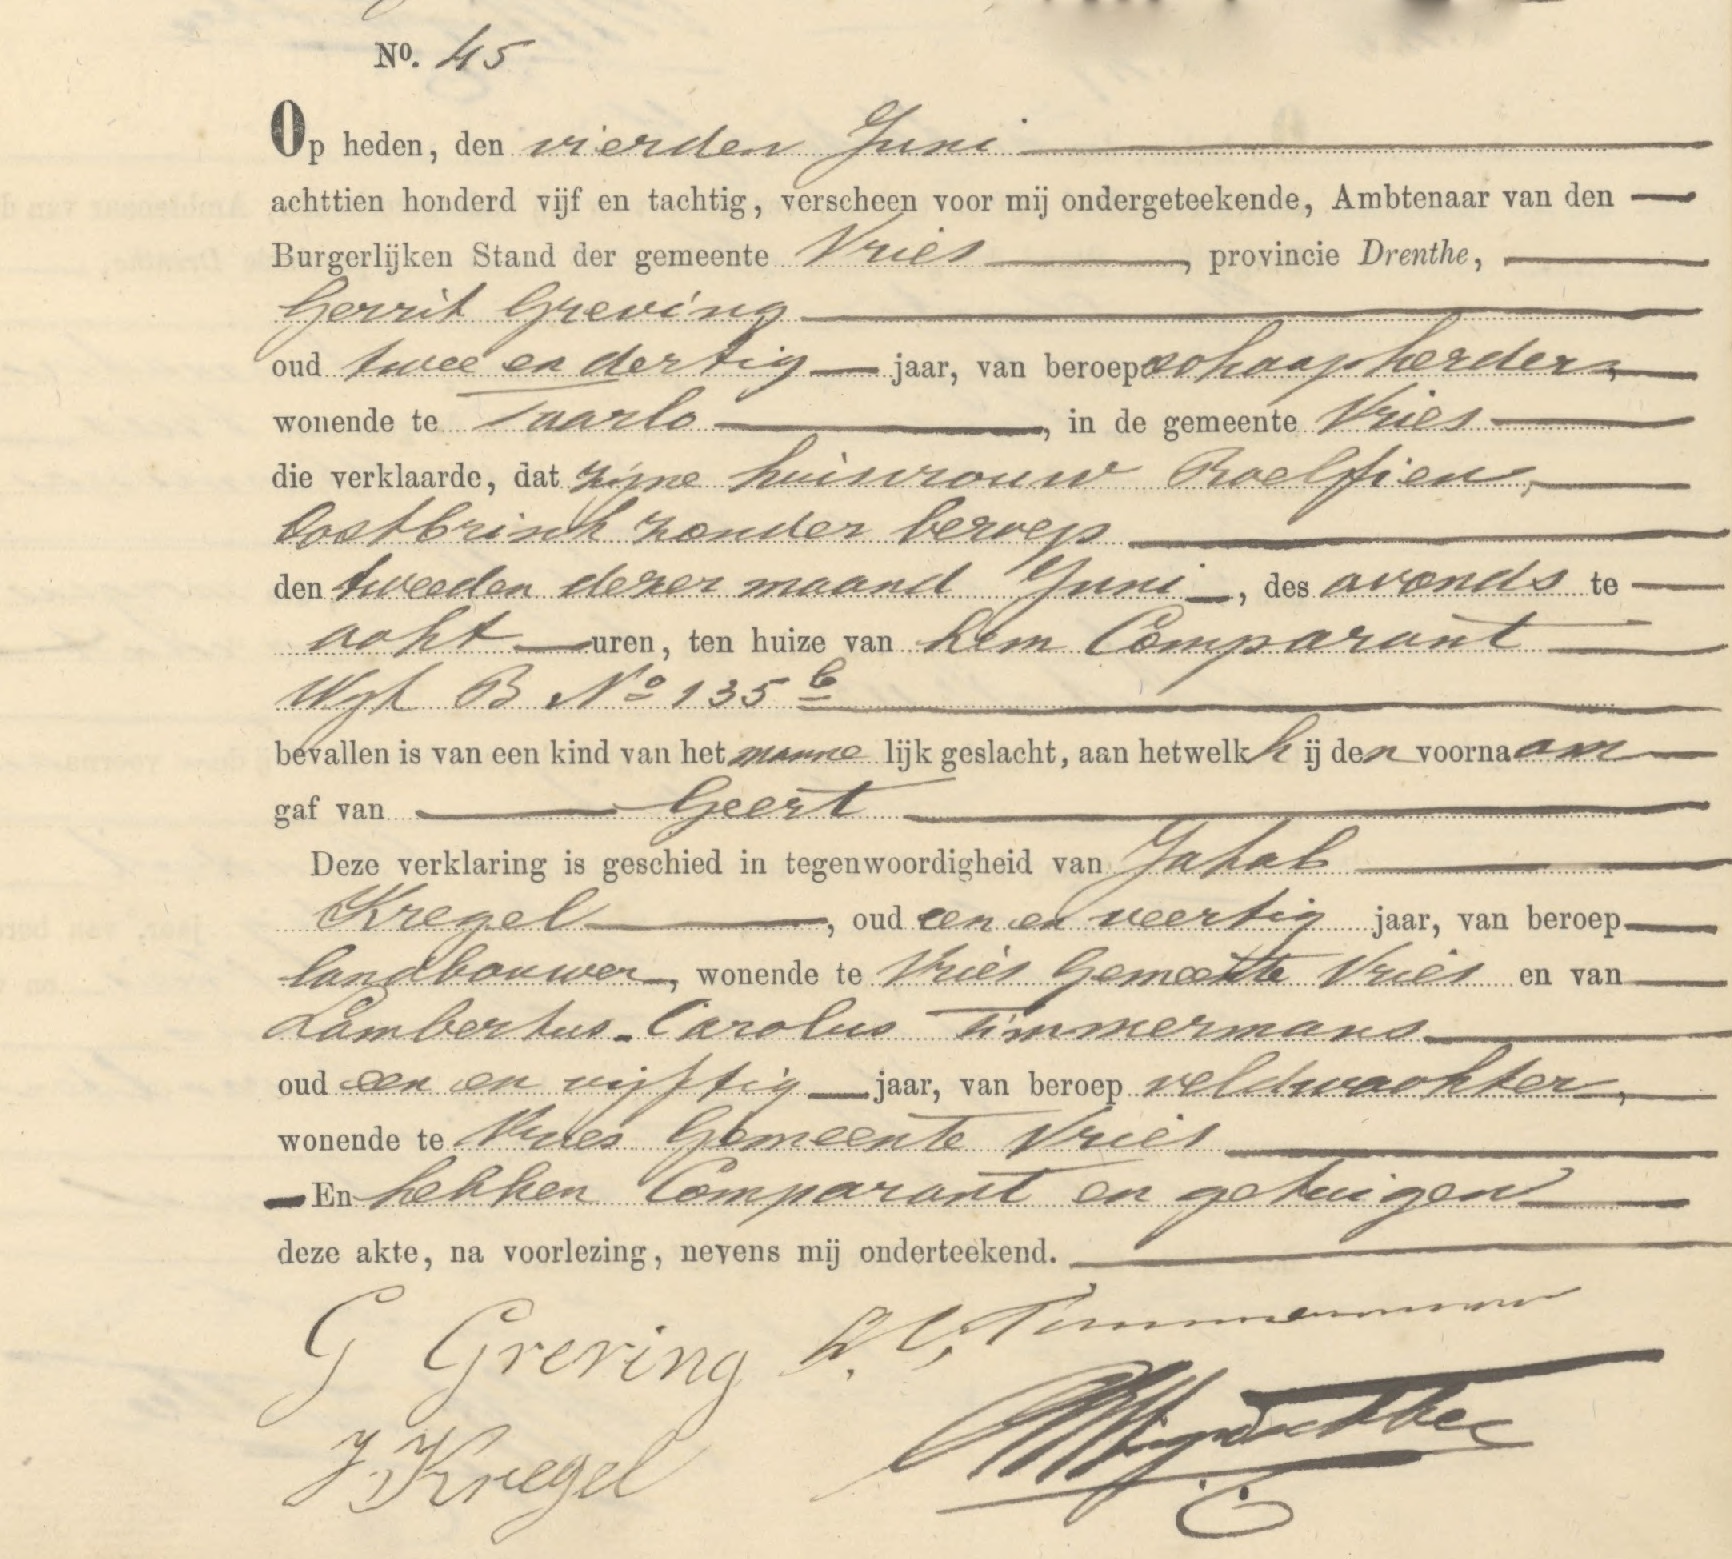 No. 45
Op heden, den vierden Juni
achttien honderd vijf en tachtig, verscheen voor mij ondergeteekende, Ambtenaar van den
Burgerlijken Stand der gemeente Vries, provincie Drenthe,
Gerrit Greving
oud twee en dertig jaar, van beroep schaapherder,
wonende te Taarlo, in de gemeente Vries
die verklaarde, dat zijne huisvrouw Roelfien,
Oostbrink zonder beroep
den tweeden dezer maand Juni, des avonds te
acht uren, ten huize van hem Comparant
Wyk B No 135 b
bevallen is van een kind van het manne lijk geslacht, aan hetwelk hij den voornaam
gaf van Geert
Deze verklaring is geschied in tegenwoordigheid van Jakob
Kregel, oud een en veertig jaar, van beroep
landbouwer, wonende te Vries Gemeente Vries en van
Lambertus-Carolus Timmermans
oud een en vijftig jaar, van beroep veldwachter,
wonende te Vries Gemeente Vries
En hebben Comparant en getuigen
deze akte, na voorlezing, nevens mij onderteekend.
G Greving L. C. Timmermans
J Kregel